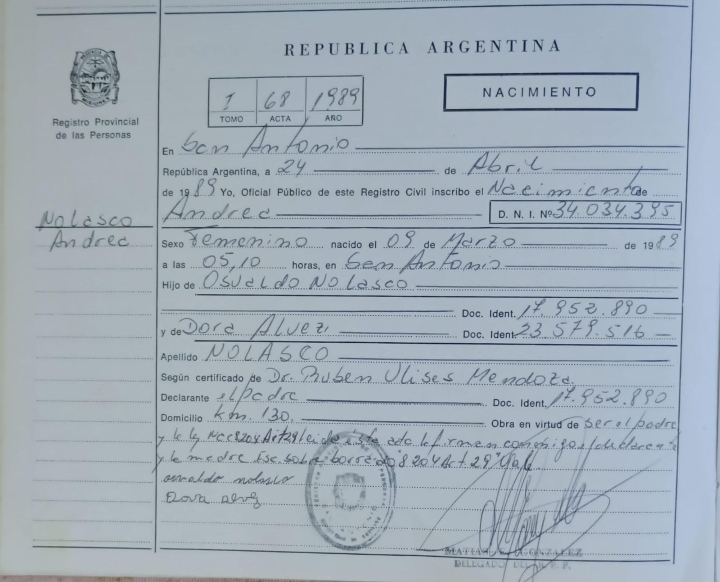 REPUBLICA ARGENTINA
Registro Provincial
de las Personas
I 68 1989
TOMO ACTA AÑO
NACIMIENTO
En San Antonio
República Argentina, a 24 de Abril
de 1989 Yo, Oficial Público de este Registro Civil inscribo el Nacimiento de
Andrea D. N. I. Nº 34.034.395
Nolasco
Andrea
Sexo Femenino nacido el 09 de Marzo de 1989
a las 05,10 horas, en San Antonio
Hijo de Osvaldo Nolasco
Doc. Ident. 17.952.890
y de Dora Alvez Doc. Ident. 23.579.516
Apellido NOLASCO
Según certificado de Dr. Ruben Ulises Mendoza
Declarante el padre Doc. Ident. 17.952.890
Domicilio Km. 130. Obra en virtud de ser el padre
y la ley Leida este acta la firman conmigo el declarante
y la madre Esc. sobre borrado 8204 Art 29 Vale
osvaldo nolasco
Dora alvez
GONZALEZ
DELEGADO